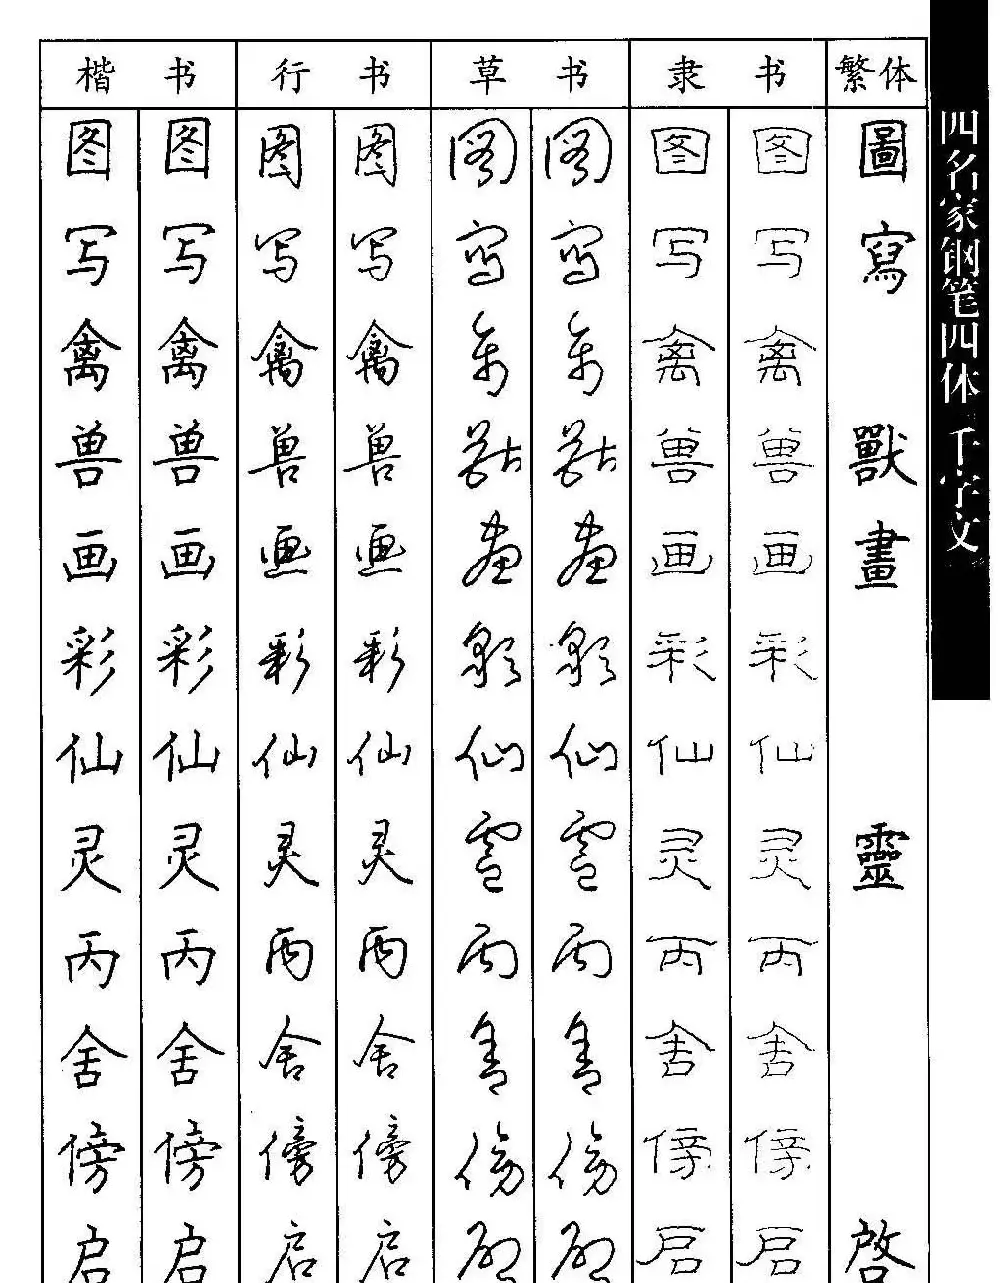 楷 书 行 书 草 书 隶 书 繁体
图 图 图 图 图 图 图 图 圖
写 写 写 写 写 写 写 写 寫
禽 禽 禽 禽 禽 禽 禽 禽
兽 兽 兽 兽 獸 獸 兽 兽 獸
画 画 画 画 画 画 画 画 畫
彩 彩 彩 彩 彩 彩 彩 彩
仙 仙 仙 仙 仙 仙 仙 仙
灵 灵 灵 灵 靈 靈 灵 灵 靈
丙 丙 丙 丙 丙 丙 丙 丙
舍 舍 舍 舍 舍 舍 舍 舍
傍 傍 傍 傍 傍 傍 傍 傍
启 启 启 启 启 启 启 启 啓
四名家钢笔四体千字文